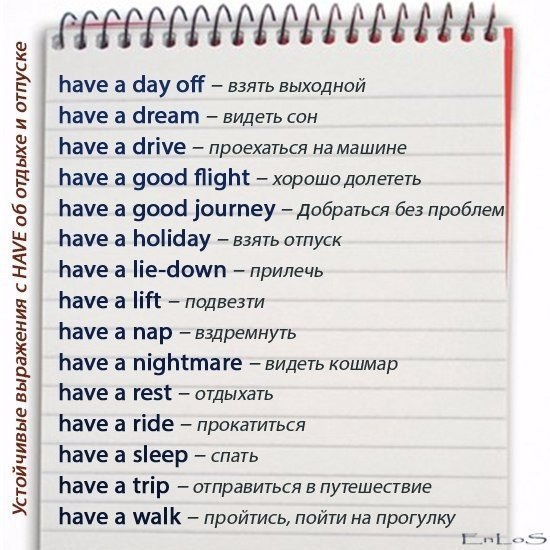 Устойчивые выражения с HAVE об отдыхе и отпуске
have a day off – взять выходной
have a dream – видеть сон
have a drive – проехаться на машине
have a good flight – хорошо долететь
have a good journey – Добраться без проблем
have a holiday – взять отпуск
have a lie-down – прилечь
have a lift – подвезти
have a nap – вздремнуть
have a nightmare – видеть кошмар
have a rest – отдыхать
have a ride – прокатиться
have a sleep – спать
have a trip – отправиться в путешествие
have a walk – пройтись, пойти на прогулку
EnLoS